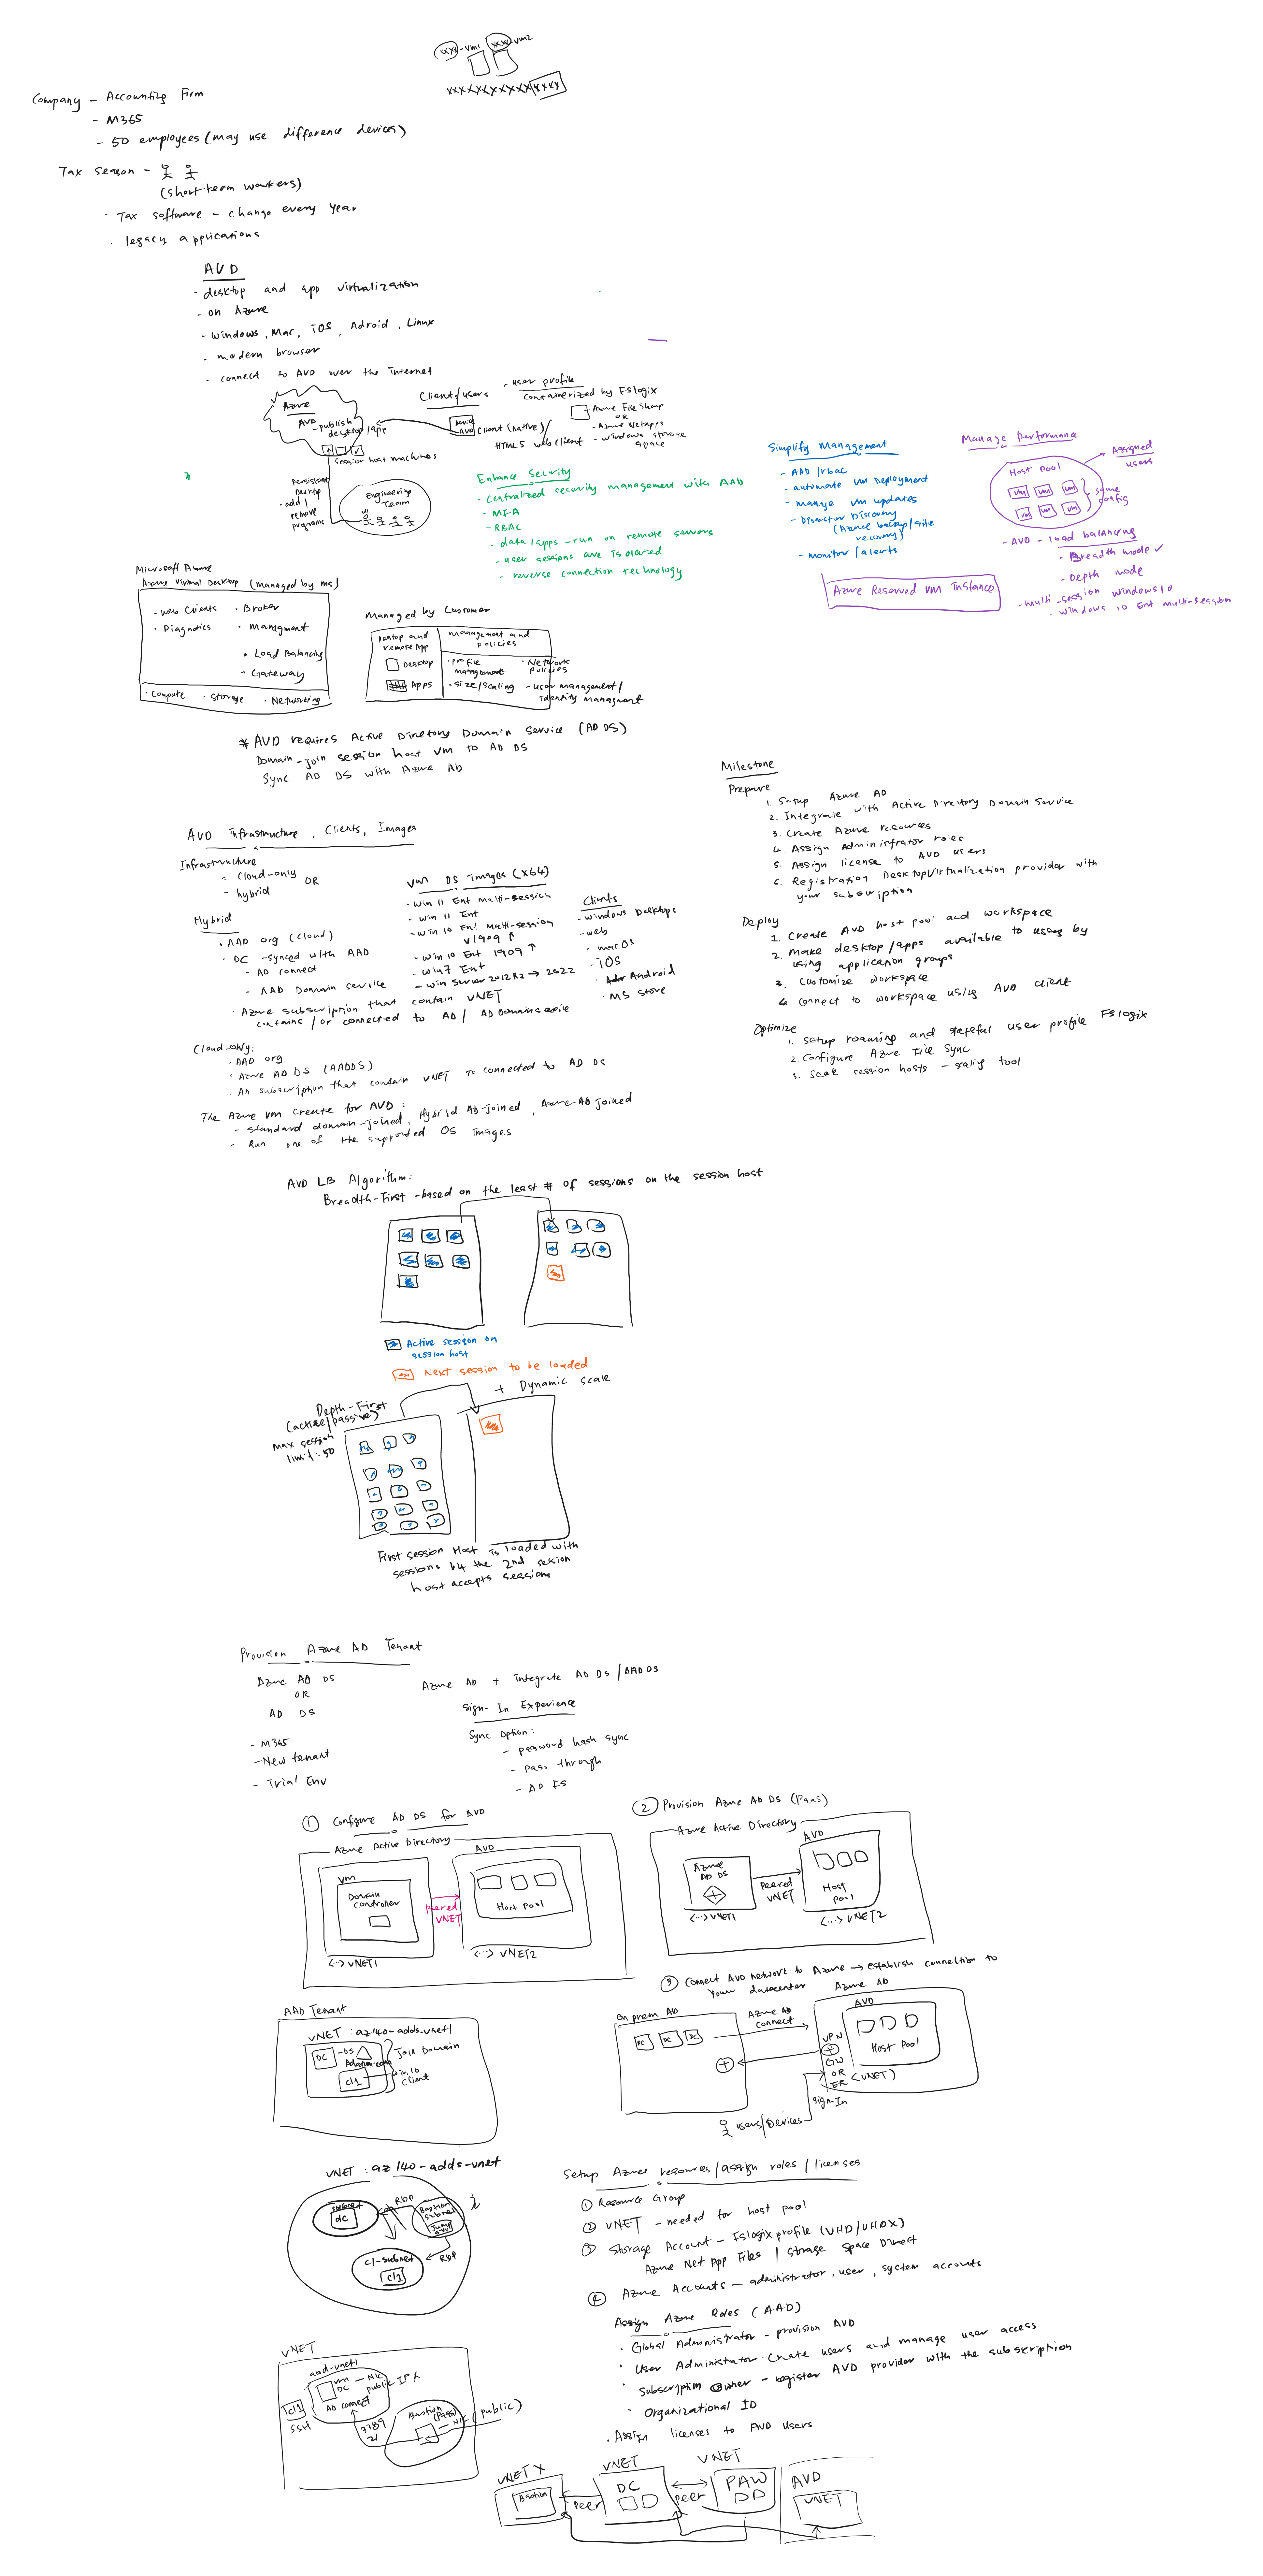 xxxx-vm1 xxxx-vm2
xxxxxxxxxxxxxx
Company - Accounting Firm
- M365
- 50 employees (may use difference devices)
Tax season -
(short term workers)
· Tax software - change every year
· legacy applications
AVD
· desktop and app virtualization
- on Azure
- Windows, Mac, iOS, Adroid, Linux
- modern browser
- connect to AVD over the internet
Azure
AVD - publish
desktop/app
session host machines
Client/users
Device
AVD client (native)/
HTML5 web client
- user profile
containerized by FSlogix
- Azure File Share
OR
- Azure Netapps
- Windows storage
space
persistent
desktop
- add/
remove
programs
Engineering
Team
Enhance Security
- Centralized security management with AAD
- MFA
- RBAC
- data/apps - run on remote servers
- user sessions are isolated
- reverse connection technology
Simplify Management
- AAD/rbac
- automate VM deployment
- manage VM updates
- Disaster
(Azure backup/site
recovery)
- monitor/alerts
Manage performance
Host Pool
vm vm vm
vm vm vm
same
config
Assigned
users
- AVD - load balancing
- Breadth mode ✓
- Depth mode
- multi-session windows 10
- windows 10 Ent multi-session
Azure Reserved VM instance
Microsoft Azure
Azure Virtual Desktop (managed by ms)
· Web Clients · Broker
· Diagnotics · Managment
· Load Balancing
- Gateway
· Compute · Storage · Networking
Managed by Customer
Desktop and
remote App
Desktop
Apps
management and
policies
· profile
management
· size/scaling
· Network
policies
- user management/
identity managment
* AVD requires Active Directory Domain Service (AD DS)
Domain-join session host VM to AD DS
Sync AD DS with Azure AD
Milestone
Prepare
1. Setup Azure AD
2. Integrate with Active Directory Domain Service
3. Create Azure resources
4. Assign Administrator roles
5. Assign license to AVD users
6. Registration DesktopVirtualization provider with
your subscription
Deploy
1. Create AVD host pool and workspace
2. Make desktop/apps available to users by
using application groups
3. Customize workspace
4. connect to workspace using AVD client
Optimize
1. setup roaming and stateful user profile FSlogix
2. Configure Azure File Sync
3. Scale session hosts - scaling tool
AVD infrastructure, Clients, Images
Infrastructure
- Cloud-only
OR
- hybrid
Hybrid
· AAD org (cloud)
· DC - synced with AAD
- AD connect
- AAD Domain service
· Azure subscription that contain VNET
contains/or connected to AD/ AD Domain service
VM OS Images (X64)
· win 11 Ent Multi-session
- win 11 Ent
- win 10 Ent Multi-session
v1909 ↑
- win 10 Ent 1909 ↑
- win7 Ent
- Win Server 2012 R2 → 2022
Clients
- windows Desktops
- web
- macOS
- iOS
- Android
· MS store
Cloud-only:
· AAD org
· Azure AD DS (AADDS)
· An subscription that contain VNET is connected to AD DS
The Azure VM create for AVD:
- standard domain-joined, Hybrid AD-joined, Azure-AD joined
- Run one of the supported OS images
AVD LB Algorithm:
Breadth-First - based on the least # of sessions on the session host
Active session on
session host
Next session to be loaded
+ Dynamic scale
Depth-First
(active/passive)
max session
limit: 50
First session Host is loaded with
sessions b4 the 2nd session
host accepts sessions
Provision Azure AD Tenant
Azure AD DS
OR
AD DS
- M365
- New tenant
- Trial Env
Azure AD + integrate AD DS/AAD DS
Sign-In Experience
Sync Option:
- password hash sync
- pass through
- AD FS
1 Configure AD DS for AVD
Azure Active Directory
VM
Domain
controller
<··> VNET1
peered
VNET
AVD
Host Pool
<··> VNET2
2 Provision Azure AD DS (PaaS)
Azure Active Directory
Azure
AD DS
<··> VNET1
peered
VNET
AVD
Host
Pool
<··> VNET2
3 Connect AVD network to Azure → establish connection to
your datacenter
On prem AD
DC DC DC
Azure AD
connect
Azure AD
AVD
Host Pool
VPN
GW
OR
ER
(VNET)
Sign-In
users/Devices
AAD Tenant
VNET: az140-adds-vnet1
DC - DS
cl1
Join Domain
win10
client
VNET: az140-adds-vnet
subnet
dc
RDP
Bastion
subnet
cl-subnet
cl1
RDP
Setup Azure resources/assign roles/licenses
1 Resource Group
2 VNET - needed for host pool
3 Storage Account - FSlogix profile (VHD/VHDX)
Azure Net App Files / Storage Space Direct
4 Azure Accounts - administrator, user, system accounts
Assign Azure Roles (AAD)
· Global Administrator - provision AVD
· User Administrator - create users and manage user access
· Subscription Owner - register AVD provider with the subscription
· Organizational ID
· Assign licenses to AVD users
VNET
aad-vnet1
VM - NIC
DC public IP X
AD connect
cl1
3389
Bastion
(PaaS)
- NIC (public)
VNET X
Bastion
peer
VNET
DC
peer
VNET
PAW
AVD
VNET